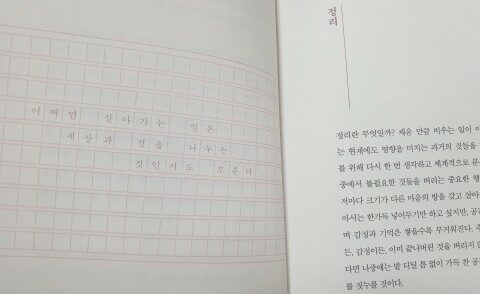 어쩌면 살아가는 일은
세상과 정을 나누는
것인지도 모른다
정리
정리란 무엇일까? 채운 만큼 비우는 일이 아
는 현재에도 영향을 미치는 과거의 것들을
를 위해 다시 한 번 생각하고 체계적으로 분
중에서 불필요한 것들을 버리는 중요한 행
저마다 크기가 다른 마음의 방을 갖고 살아
아서는 한가득 넣어두기만 하고 싶지만, 공
며 감정과 기억은 쌓을수록 무거워진다. 추
든, 감정이든, 이미 끝나버린 것을 버리지
다면 나중에는 발 디딜 틈 없이 가득 찬 공
를 짓누를 것이다.